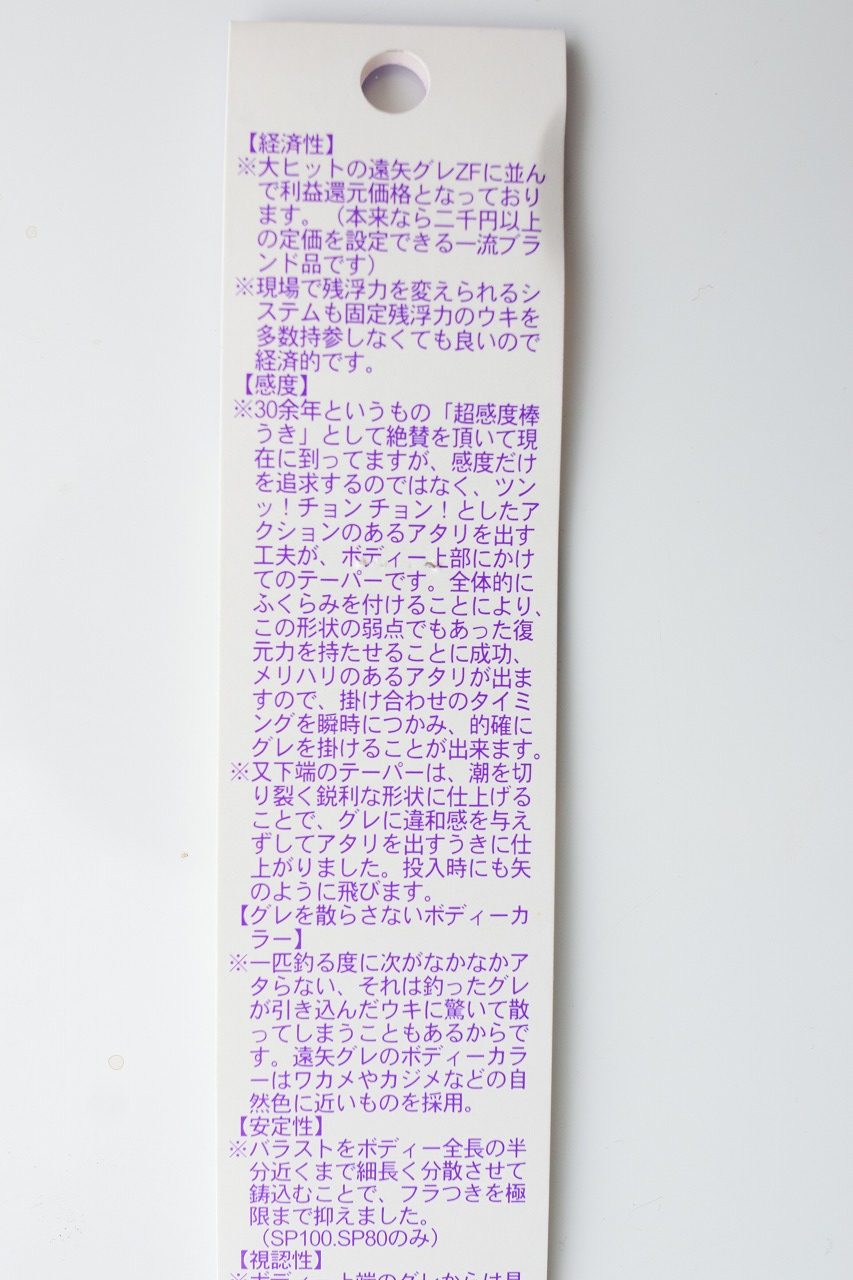 【経済性】
※大ヒットの遠矢グレZFに並ん
で利益還元価格となっており
ます。（本来なら二千円以上
の定価を設定できる一流ブラ
ンド品です）
※現場で残浮力を変えられるシ
ステムも固定残浮力のウキを
多数持参しなくても良いので
経済的です。
【感度】
※30余年というもの「超感度棒
うき」として絶賛を頂いて現
在に到ってますが、感度だけ
を追求するのではなく、ツン
ッ！チョンチョン！としたア
クションのあるアタリを出す
工夫が、ボディー上部にかけ
てのテーパーです。全体的に
ふくらみを付けることにより、
この形状の弱点でもあった復
元力を持たせることに成功、
メリハリのあるアタリが出ま
すので、掛け合わせのタイミ
ングを瞬時につかみ、的確に
グレを掛けることが出来ます。
※又下端のテーパーは、潮を切
り裂く鋭利な形状に仕上げる
ことで、グレに違和感を与え
ずしてアタリを出すうきに仕
上がりました。投入時にも矢
のように飛びます。
【グレを散らさないボディーカ
ラー】
※一匹釣る度に次がなかなかア
タらない、それは釣ったグレ
が引き込んだウキに驚いて散
ってしまうこともあるからで
す。遠矢グレのボディーカラ
ーはワカメやカジメなどの自
然色に近いものを採用。
【安定性】
※バラストをボディー全長の半
分近くまで細長く分散させて
鋳込むことで、フラつきを極
限まで抑えました。
（SP100.SP80のみ）
【視認性】
※ボディー上端のグレからは見